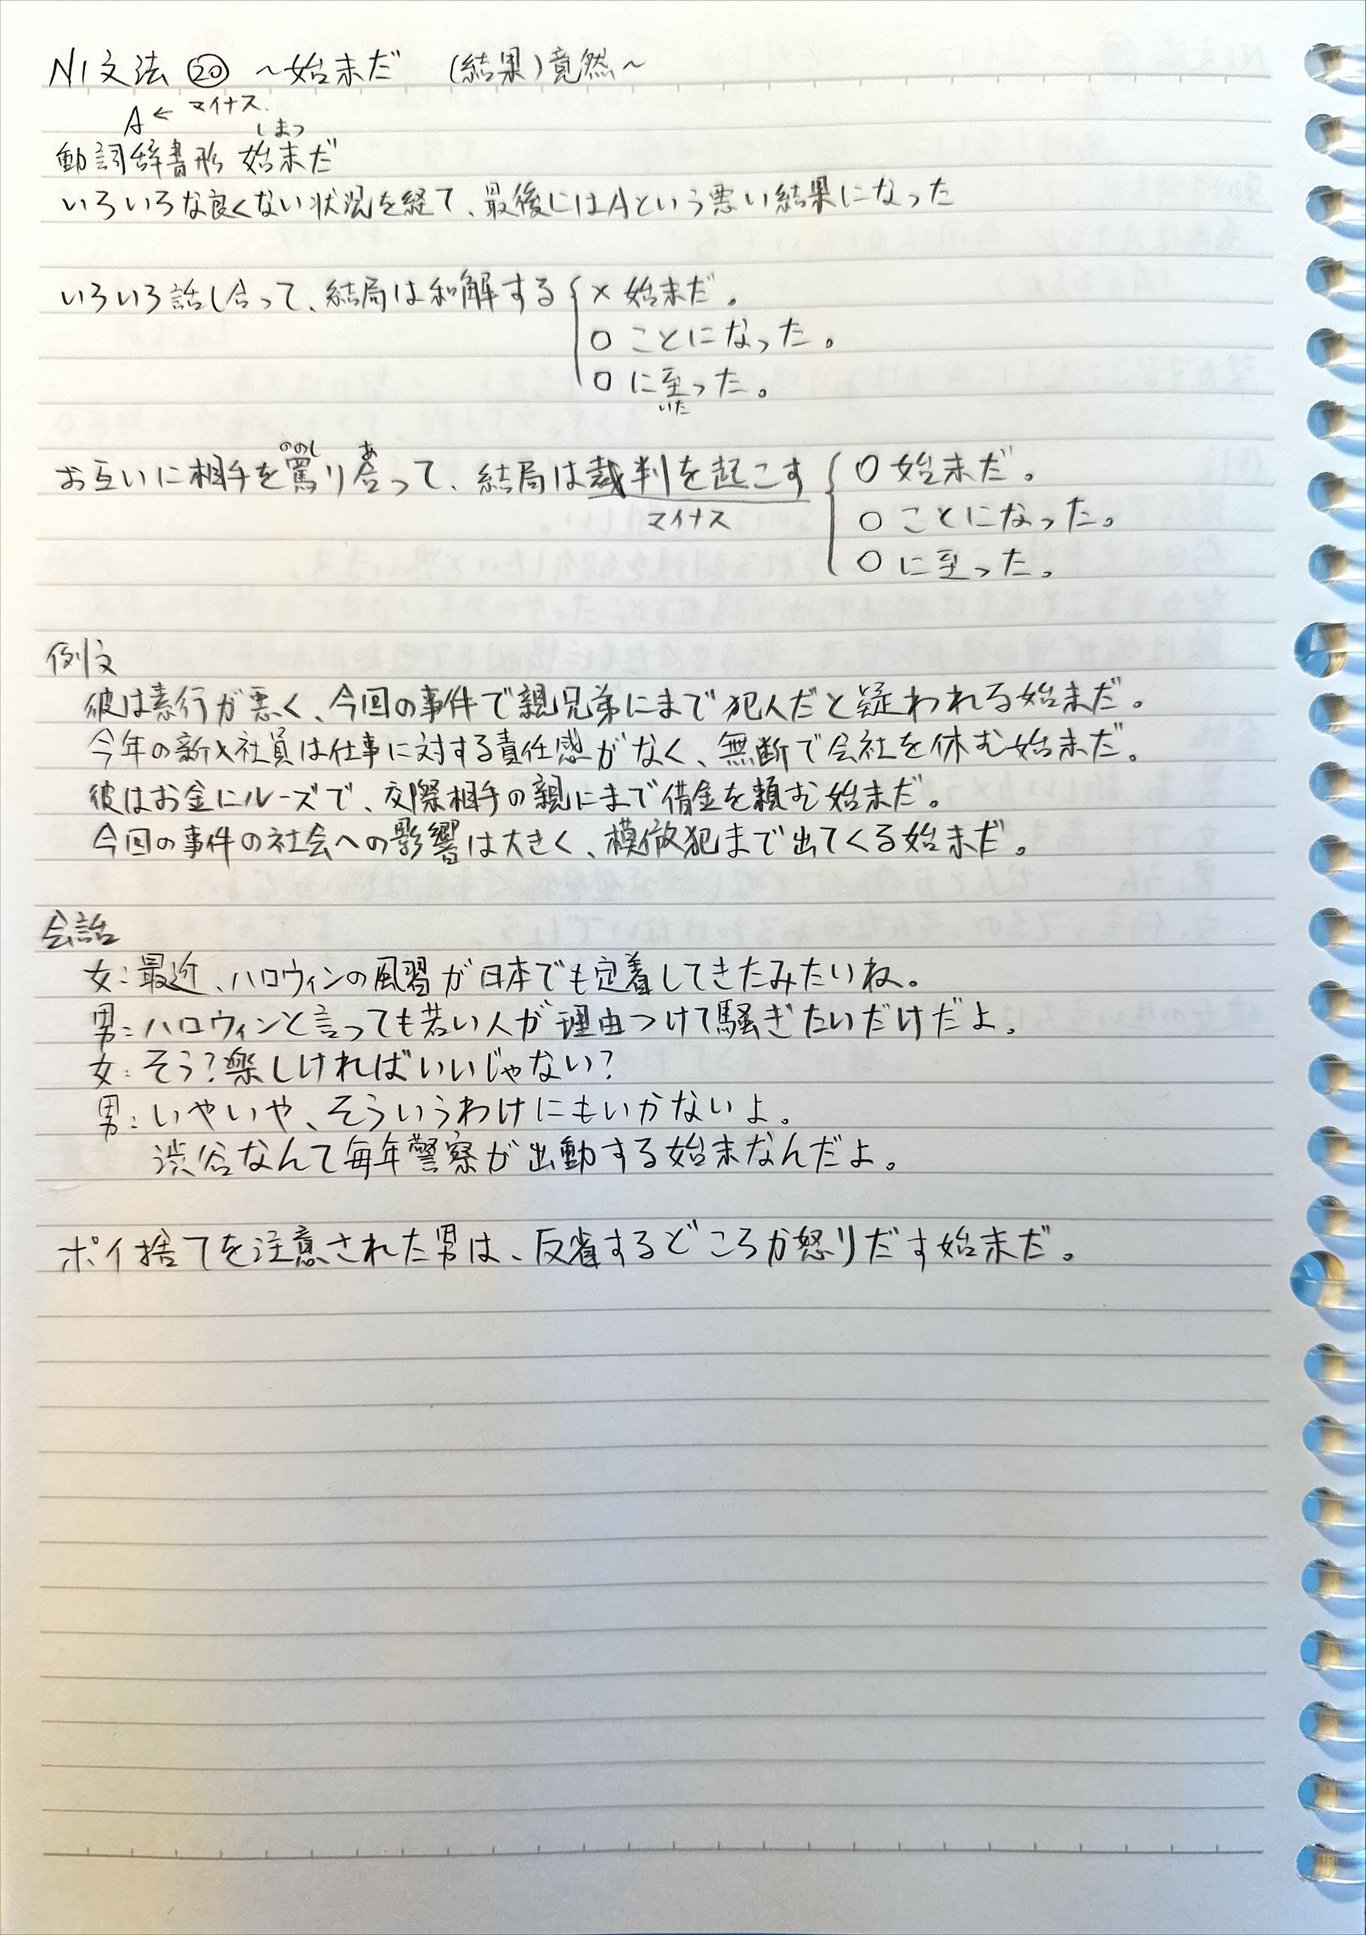 N1文法 ⑳ ～始末だ (結果)竟然～
A← マイナス
しまつ
動詞辞書形 始末だ
いろいろな良くない状況を経て、最後にはAという悪い結果になった
いろいろ話し合って、結局は和解する × 始末だ。
○ ことになった。
○ に至った。
いた
ののし あ
お互いに相手を罵り合って、結局は裁判を起こす ○ 始末だ。
マイナス ○ ことになった。
○ に至った。
例文
彼は素行が悪く、今回の事件で親兄弟にまで犯人だと疑われる始末だ。
今年の新入社員は仕事に対する責任感がなく、無断で会社を休む始末だ。
彼はお金にルーズで、交際相手の親にまで借金を頼む始末だ。
今回の事件の社会への影響は大きく、模倣犯まで出てくる始末だ。
会話
女：最近、ハロウィンの風習が日本でも定着してきたみたいね。
男：ハロウィンと言っても若い人が理由つけて騒ぎたいだけだよ。
女：そう？楽しければいいじゃない？
男：いやいや、そういうわけにもいかないよ。
渋谷なんて毎年警察が出動する始末なんだよ。
ポイ捨てを注意された男は、反省するどころか怒りだす始末だ。